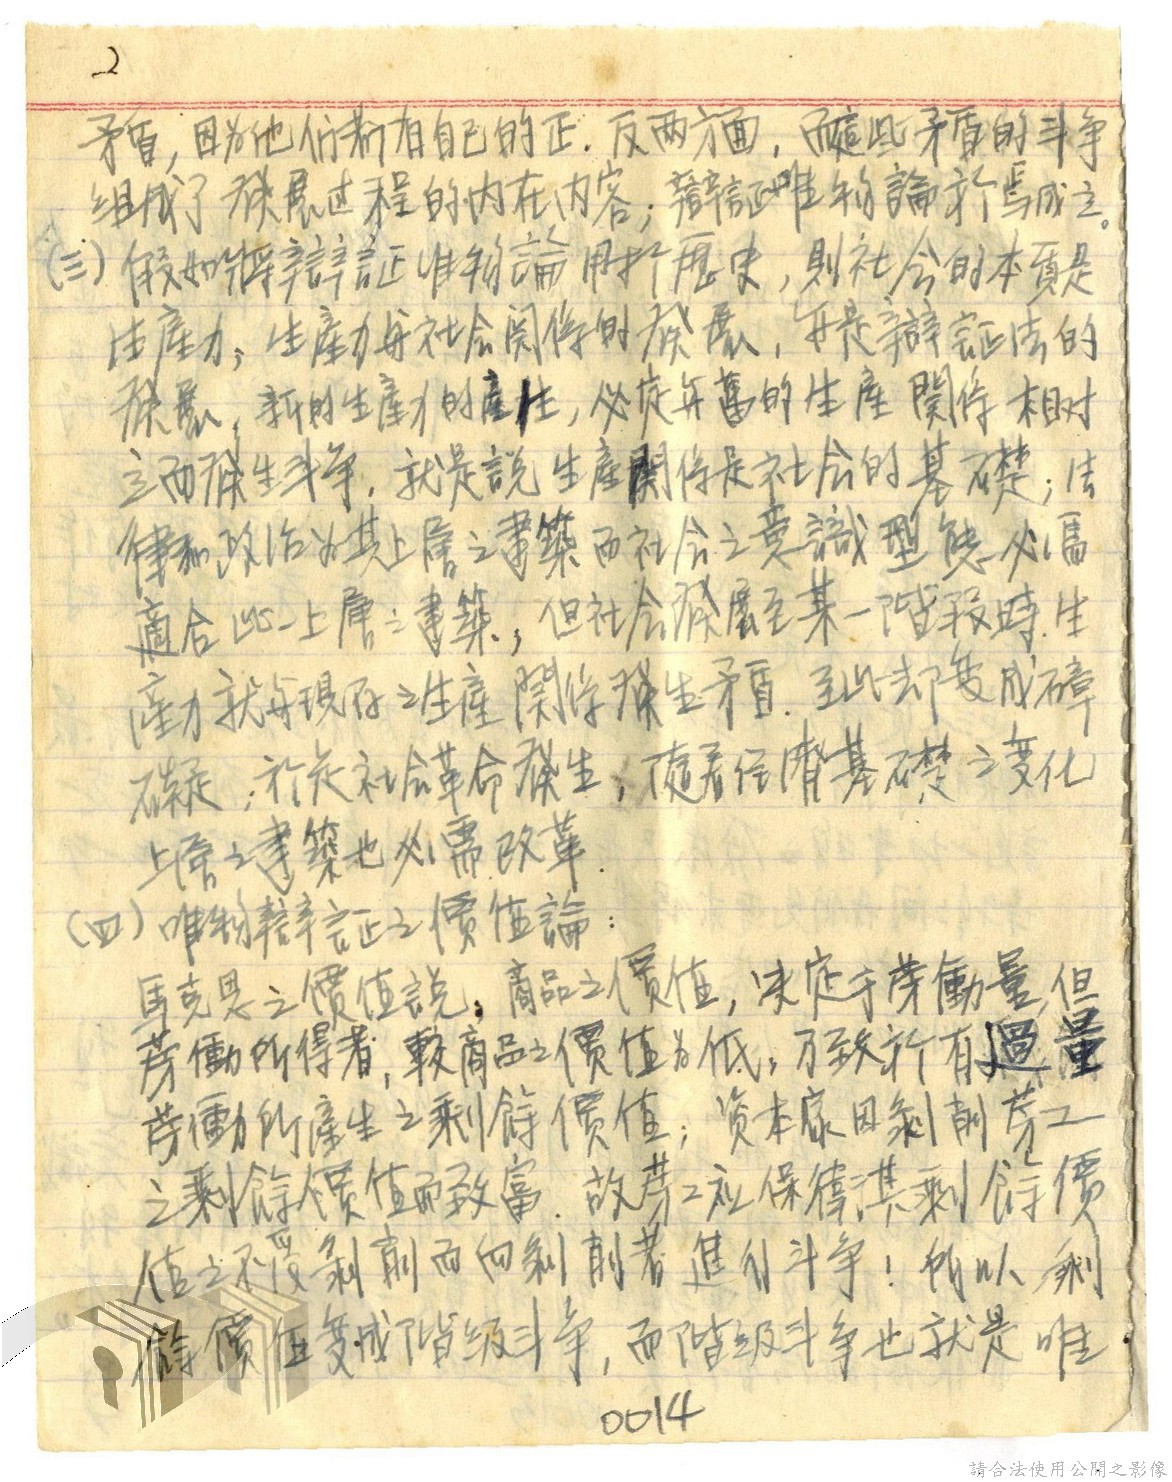 2
矛盾,因为他们都有自己的正.反两方面,而這些矛盾的斗争
组成了發展过程的内在内容;辯証唯物論於焉成立。
(三)假如將辯証唯物論用於歷史,則社会的本質是
生產力,生產力与社会関係的發展,亦是辯証法的
發展,新的生產力的產生,必定与舊的生產関係相对
立而發生斗争,就是説生產関係是社会的基礎;法
律和政治为其上層之建築而社会之意識型態必需
適合此一上層之建築,但社会發展至某一階段時.生
產力就与現存之生產関係發生矛盾.至此却变成障
礙,於是社会革命發生,隨着经濟基礎之变化
上層之建築也必需改革.
(四)唯物辯証之價值論:
馬克思之價值説,商品之價值,决定于劳働量,但
劳働所得者,較商品之價值为低,乃致於有過量
劳働所產生之剩餘價值;資本家因剝削劳工
之剩餘價值而致富.故劳工為保衛其剩餘價
值之不受剝削而向剝削者進行斗争!所以剩
餘價值变成階級斗争,而階级斗争也就是唯
0014
請合法使用公開之影像